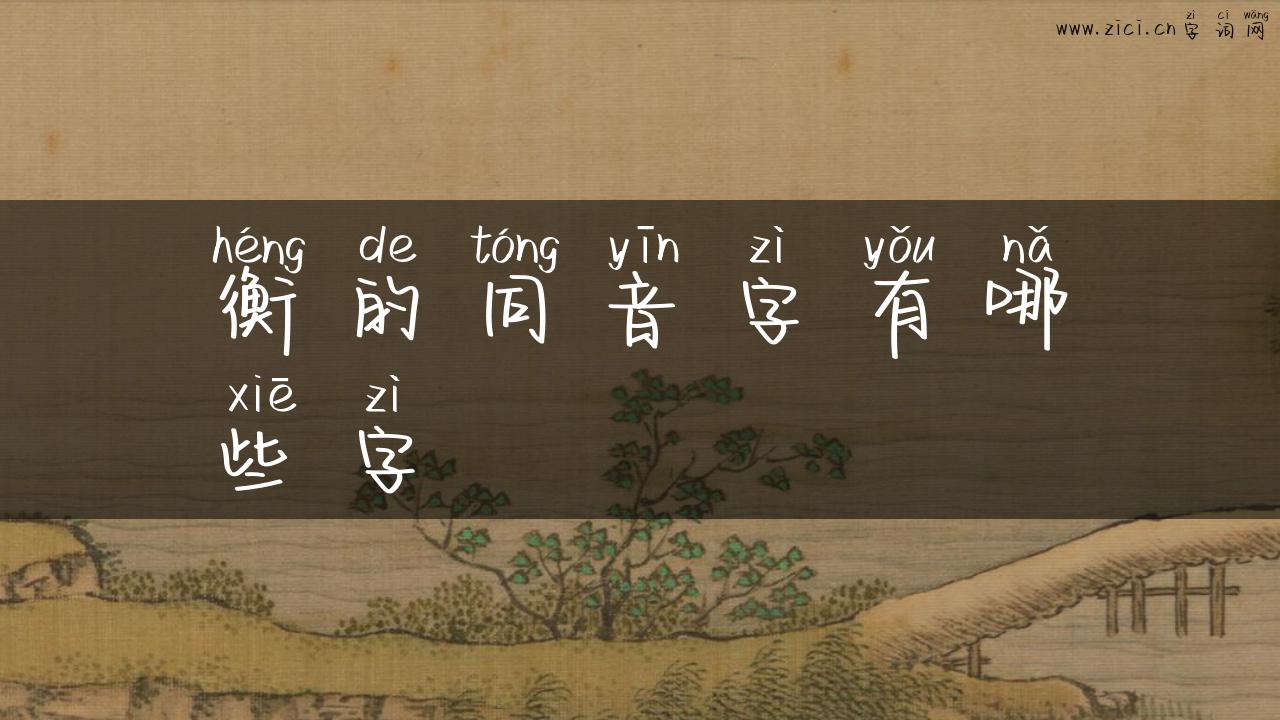 zì cí wǎng
www.zici.cn 字 词 网
héng de tóng yīn zì yǒu nǎ
衡 的 同 音 字 有 哪
xiē zì
些 字